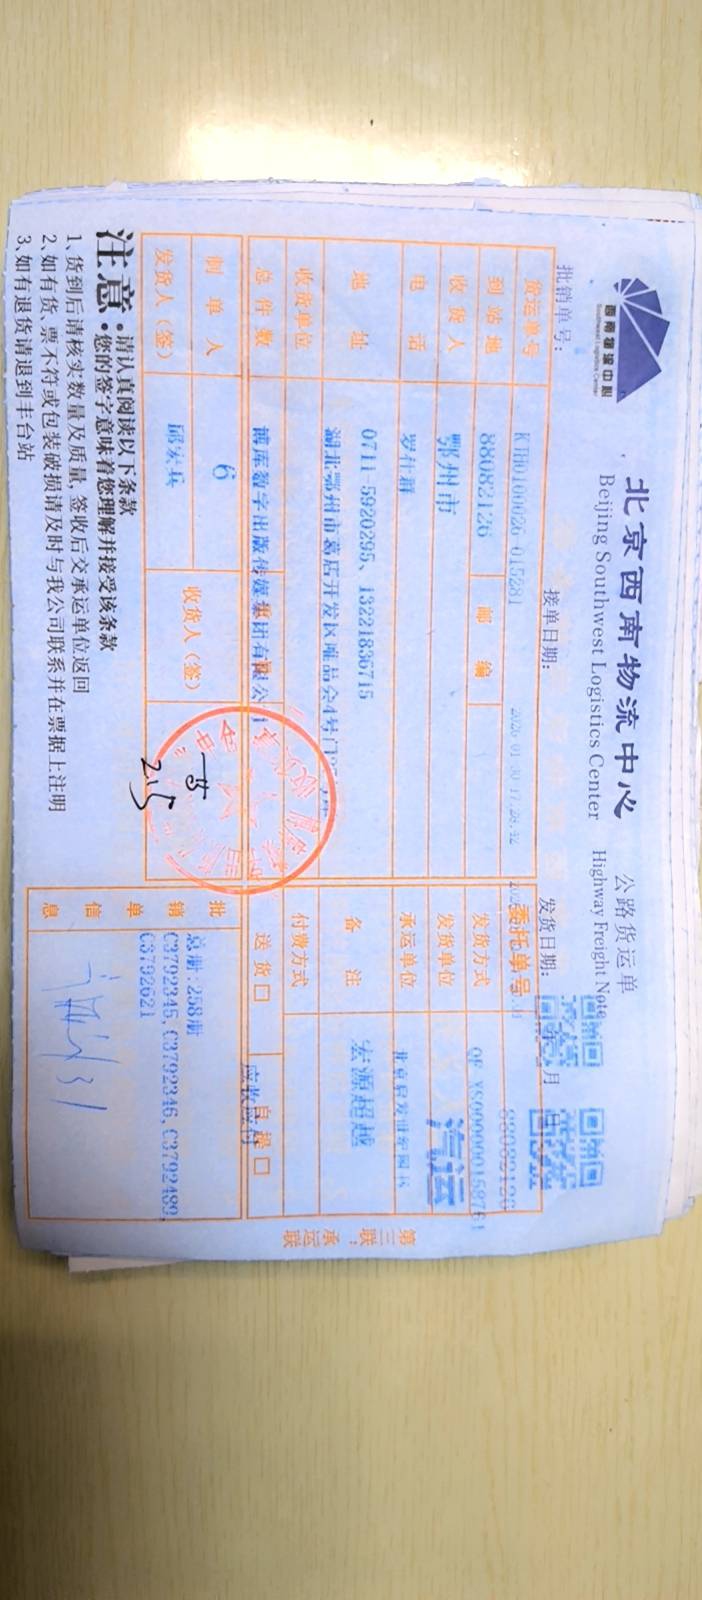 西南物流中心
Southwest Logistics Center
北京西南物流中心
Beijing Southwest Logistics Center
公路货运单
Highway Freight Note
批销单号:
接单日期:
发货日期:
年 月 日
货运单号
KYH0100026-015281
2026-01-30 17:28:42
委托单号
88082126
到站地
88082126
邮 编
发货方式
QF-XS0000000158761
收货人
鄂州市
发货单位
汽运
电 话
罗仕群
承运单位
北京启发世纪图书
地 址
0711-5920295、13221836715
备 注
宏源超越
收货单位
湖北鄂州市葛店开发区唯品会4号门
付费方式
总件数
博库数字出版传媒集团有限公司
送货口
自提口
应收应付
制单人
6
收货人(签)
发货人(签)
邱宏兵
2.5
批销单信息
总册:258册
C3792345,C3792346,C3792489,
C3792621
第三联:承运联
注意
·请认真阅读以下条款
·您的签字意味着您理解并接受该条款
1、货到后请核实数量及质量,签收后交承运单位返回
2、如有货、票不符或包装破损请及时与我公司联系并在票据上注明
3、如有退货请退到丰台站